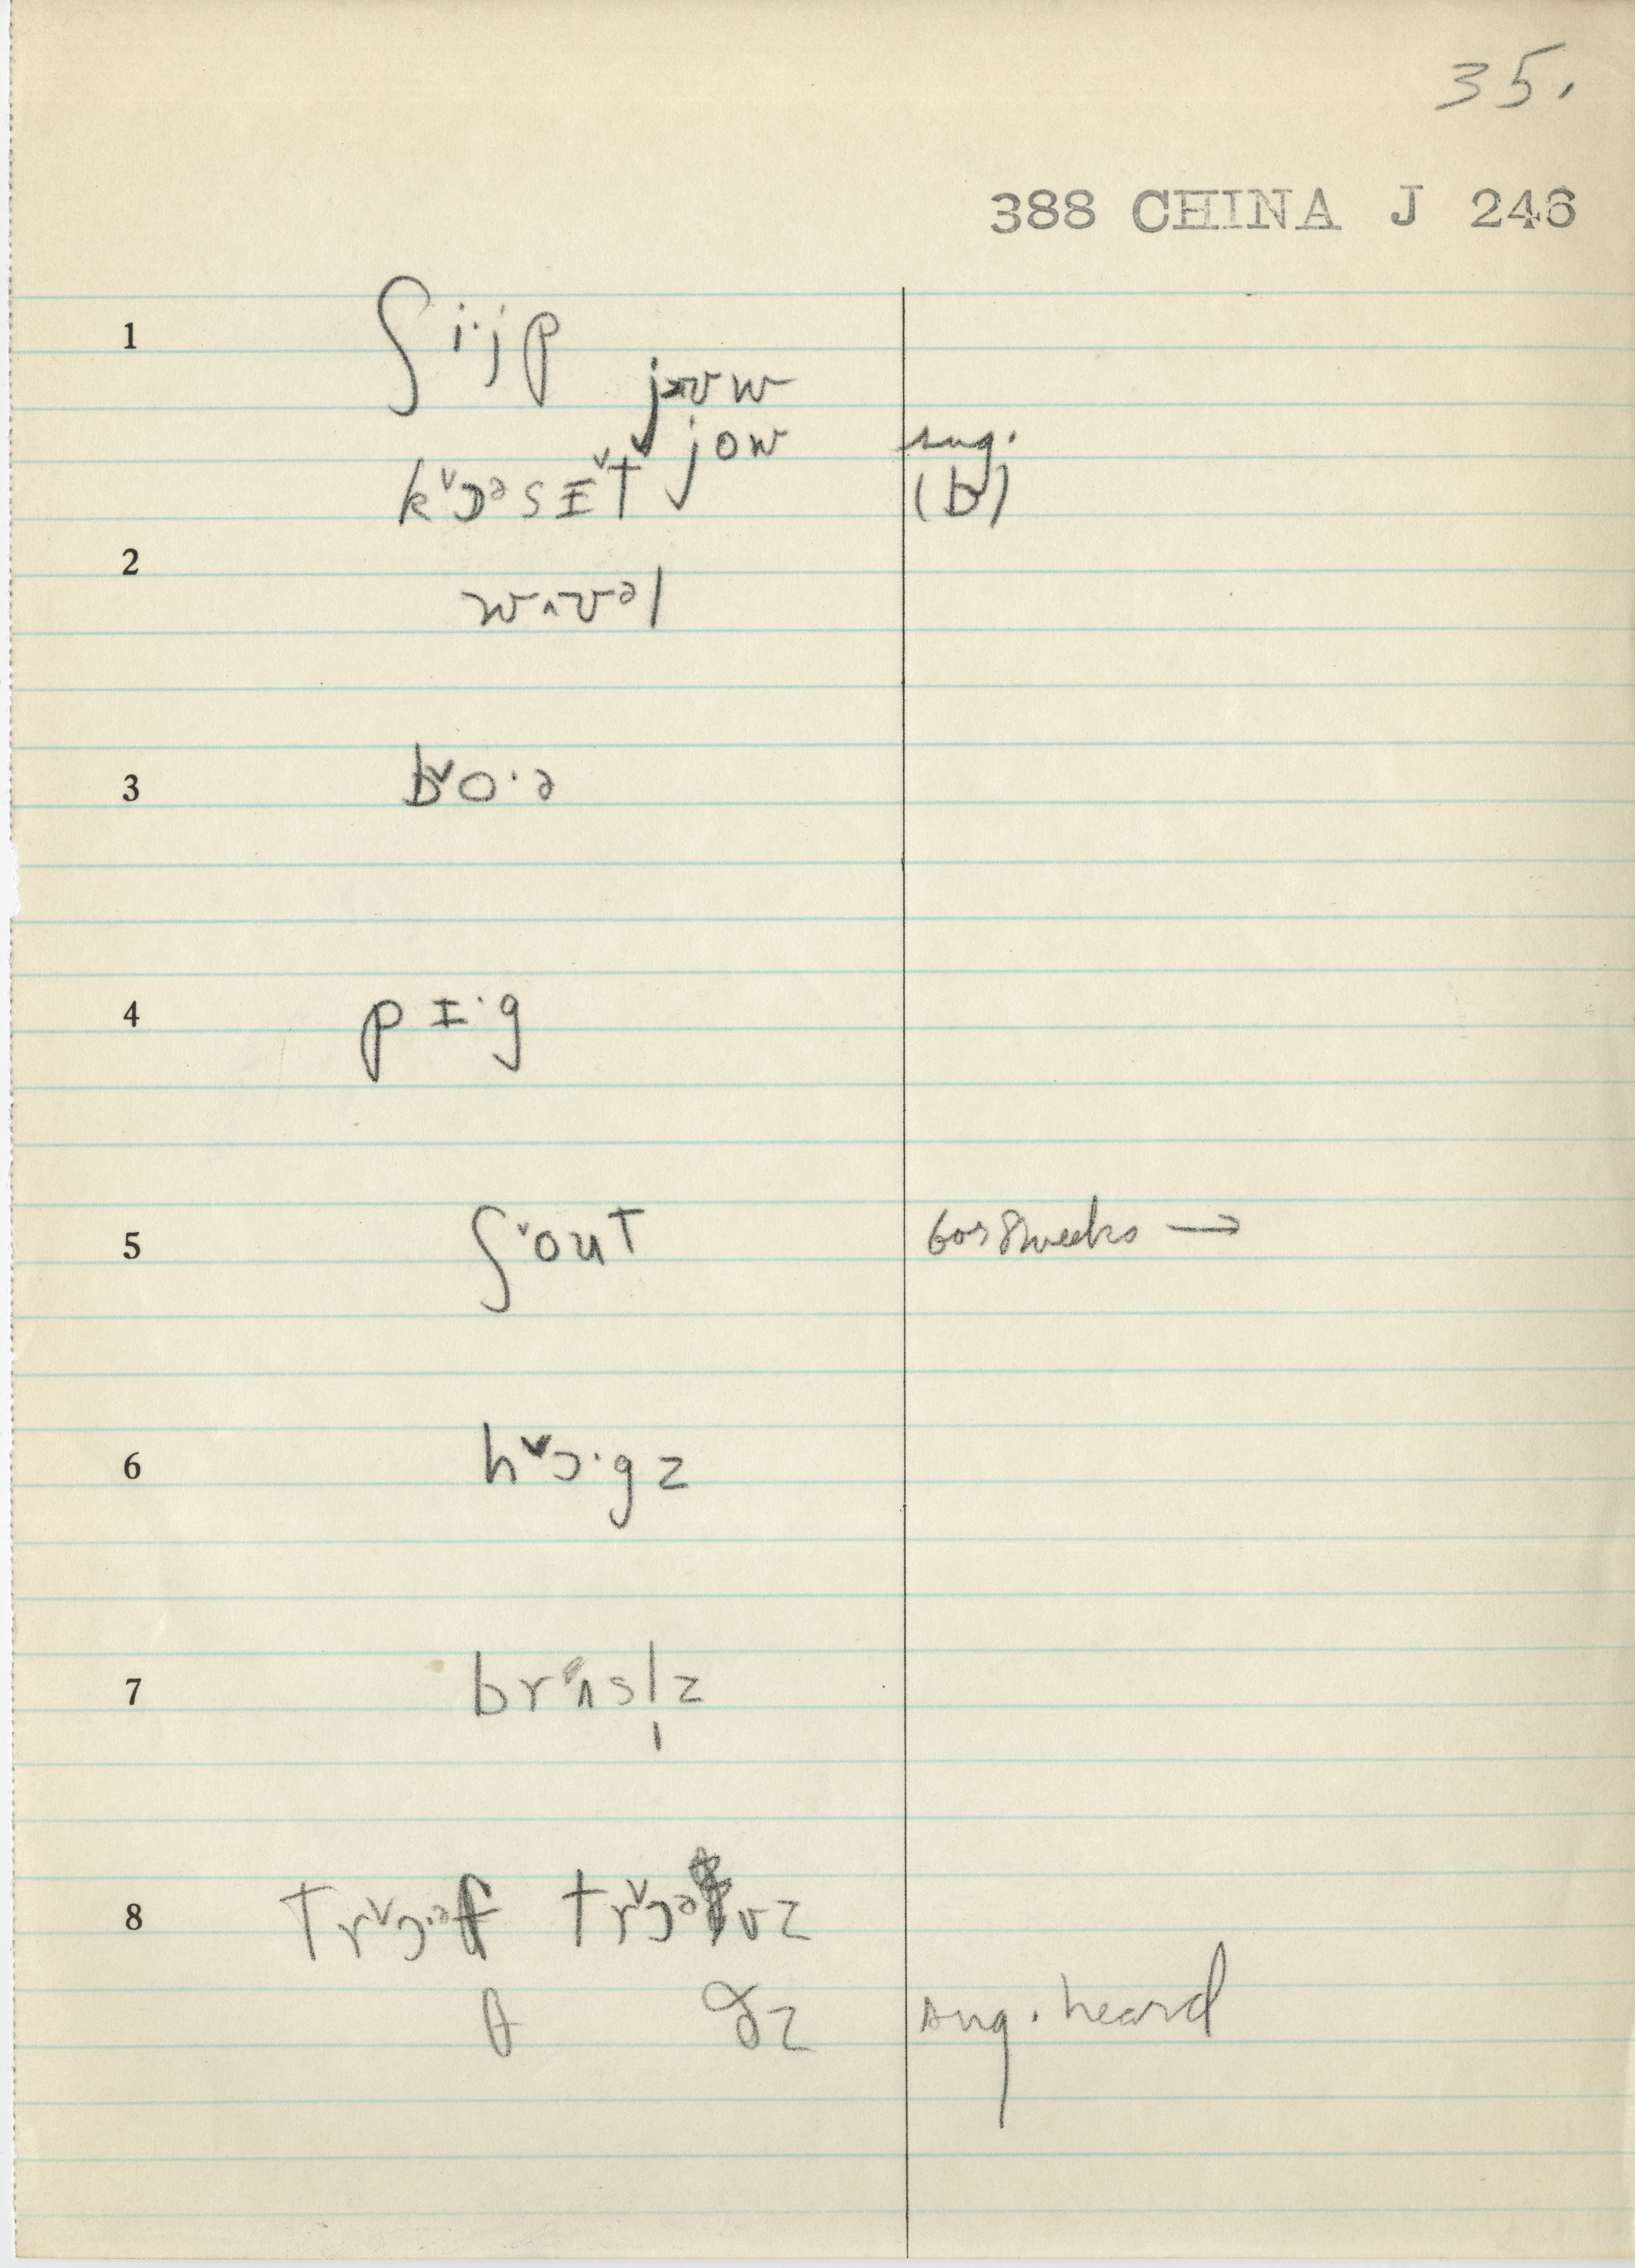 35.
388 CHINA J 246
1 ʃi·jp
jow sug.
kˇɔᵊsɪˇt (b)
2
wʌʊᵊl
3 bˇo·ə
4 pɪ·g
5 ʃˇout 6 or 8 weeks →
6 hˇɔ·gz
7 brʌsl̩z
8 trˇɔ·əf trˇɔəvz
θ ðz sug. heard